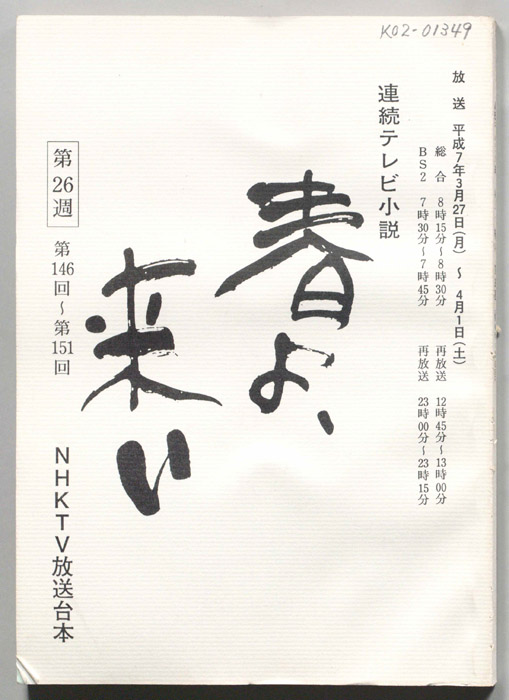 K02-01349
放送 平成7年3月27日(月)～4月1日(土)
総合 8時15分～8時30分 再放送 12時45分～13時00分
BS2 7時30分～7時45分 再放送 23時00分～23時15分
連続テレビ小説
春よ、
来い
第26週 第146回～第151回
NHKTV放送台本